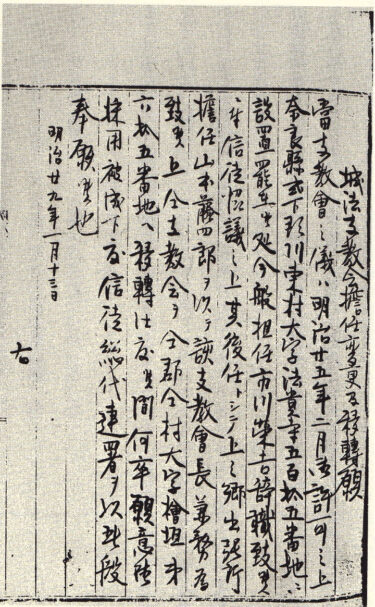 城法支教会擔任変更及移轉願
當支教會之儀ハ明治廿五年二月御許可之上
奈良縣式下郡川東村大字法貴寺五百拾五番地ニ
設置罷在候処今般担任市川榮吉辞職致候
ニ付信徒協議之上其後任トシテ上之郷出張所
擔任山本藤四郎ヲ以テ該支教會長兼務為
致候上仝支教会ヲ仝郡仝村大字檜垣第
六拾五番地ヘ移轉仕度候間何卒願意御
採用被成下度信徒総代連署ヲ以此段
奉願候也
明治廿九年一月十三日
右